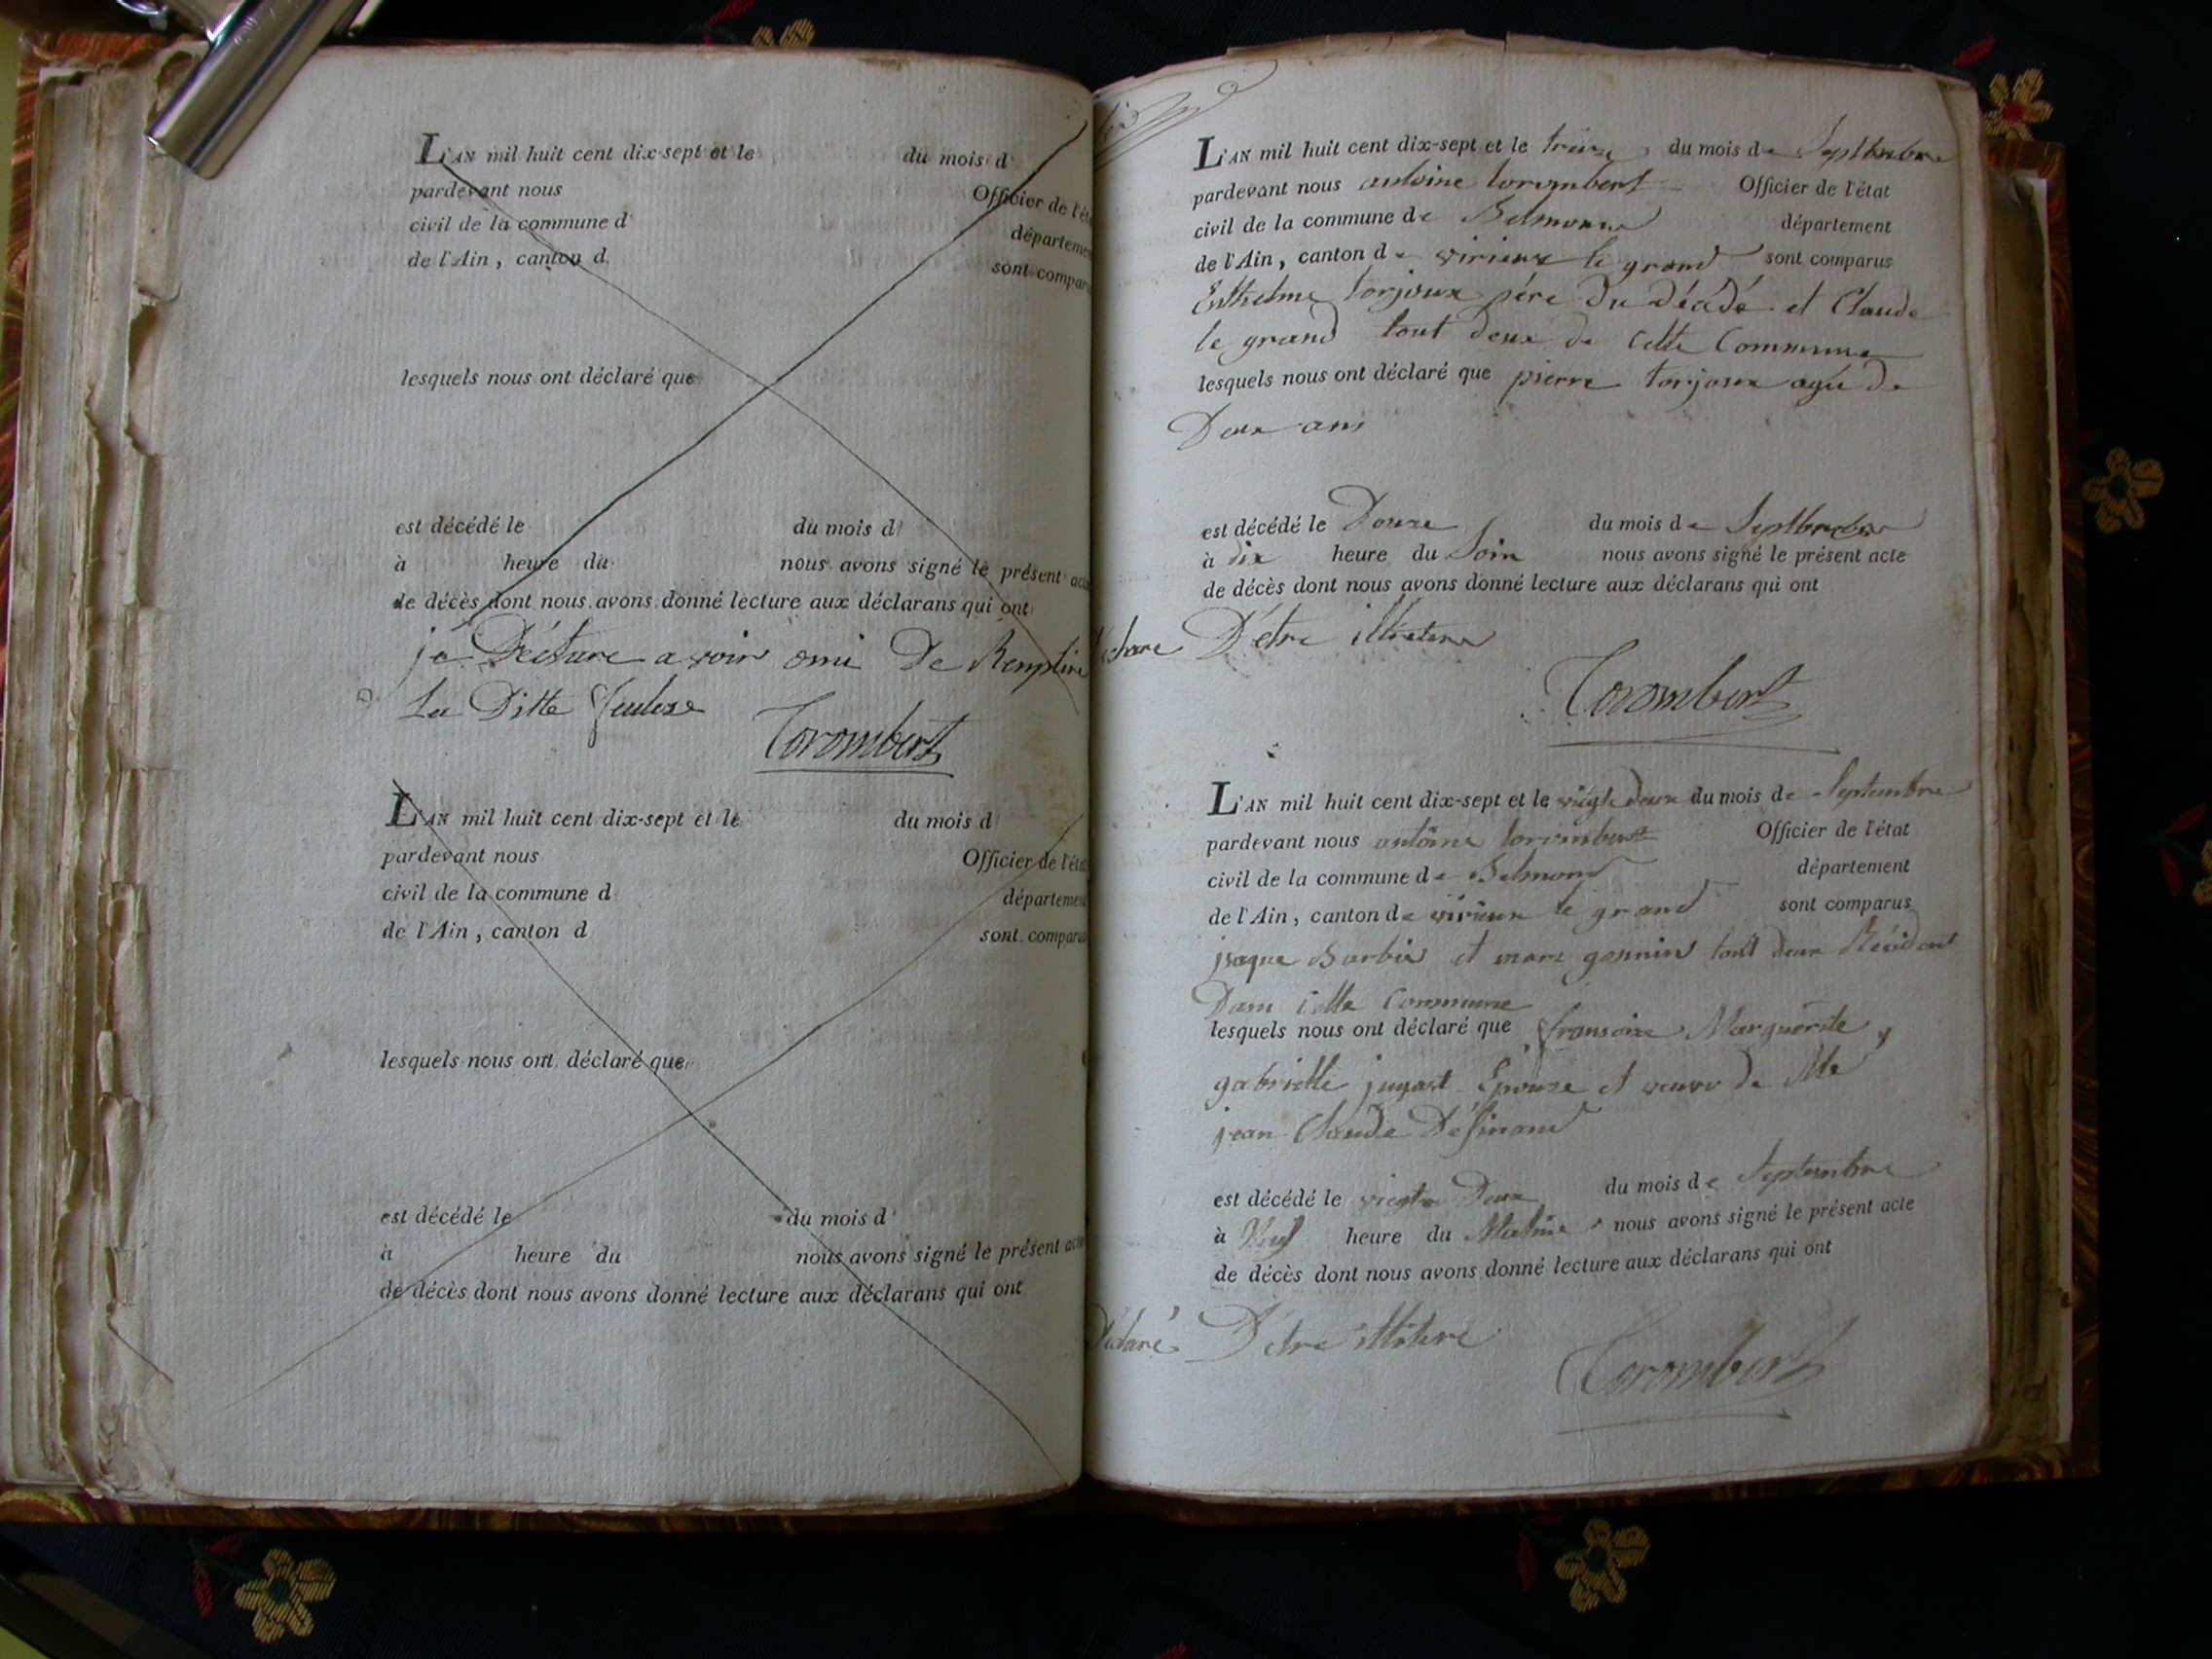 L'AN mil huit cent dix-sept et le du mois d
pardevant nous Officier de l'éta
civil de la commune d départemen
de l'Ain, canton d sont compar
lesquels nous ont déclaré que
est décédé le du mois d
à heure du nous avons signé le présent acte
de décès dont nous avons donné lecture aux déclarans qui ont
jé Déclare avoir omi De Remplire
La Ditte feulese
Corombert
L'AN mil huit cent dix-sept et le du mois d
pardevant nous Officier de l'éta
civil de la commune d départemen
de l'Ain, canton d sont comparu
lesquels nous ont déclaré que
est décédé le du mois d
à heure du nous avons signé le présent acte
de décès dont nous avons donné lecture aux déclarans qui ont
L'AN mil huit cent dix-sept et le treize du mois de Septbre
pardevant nous antoine Corombert Officier de l'état
civil de la commune de Belmont département
de l'Ain, canton de virieux le grand sont comparus
Enthelme torjoux père Du Décédé et Claude
le grand tout deux de cette Commune
lesquels nous ont déclaré que pierre torjoux agé de
Deux ans
est décédé le Douze du mois de Septbre
à dix heure du Soir nous avons signé le présent acte
de décès dont nous avons donné lecture aux déclarans qui ont
Déclaré D'etre
Corombert
L'AN mil huit cent dix-sept et le viegt deux du mois de Septembre
pardevant nous antoine Corombert Officier de l'état
civil de la commune de Belmond département
de l'Ain, canton de virieux le grand sont comparus
jsaque Barbier et marc gonnin tout deux Résidant
Dans cette Commune
lesquels nous ont déclaré que fransoize Marguerite
gabrielle jugast Epouze et veuve de Mte
jean Claude
est décédé le viegt Deux du mois de Septembre
à Neuf heure du Matine nous avons signé le présent acte
de décès dont nous avons donné lecture aux déclarans qui ont
Déclaré D'etre
Corombert